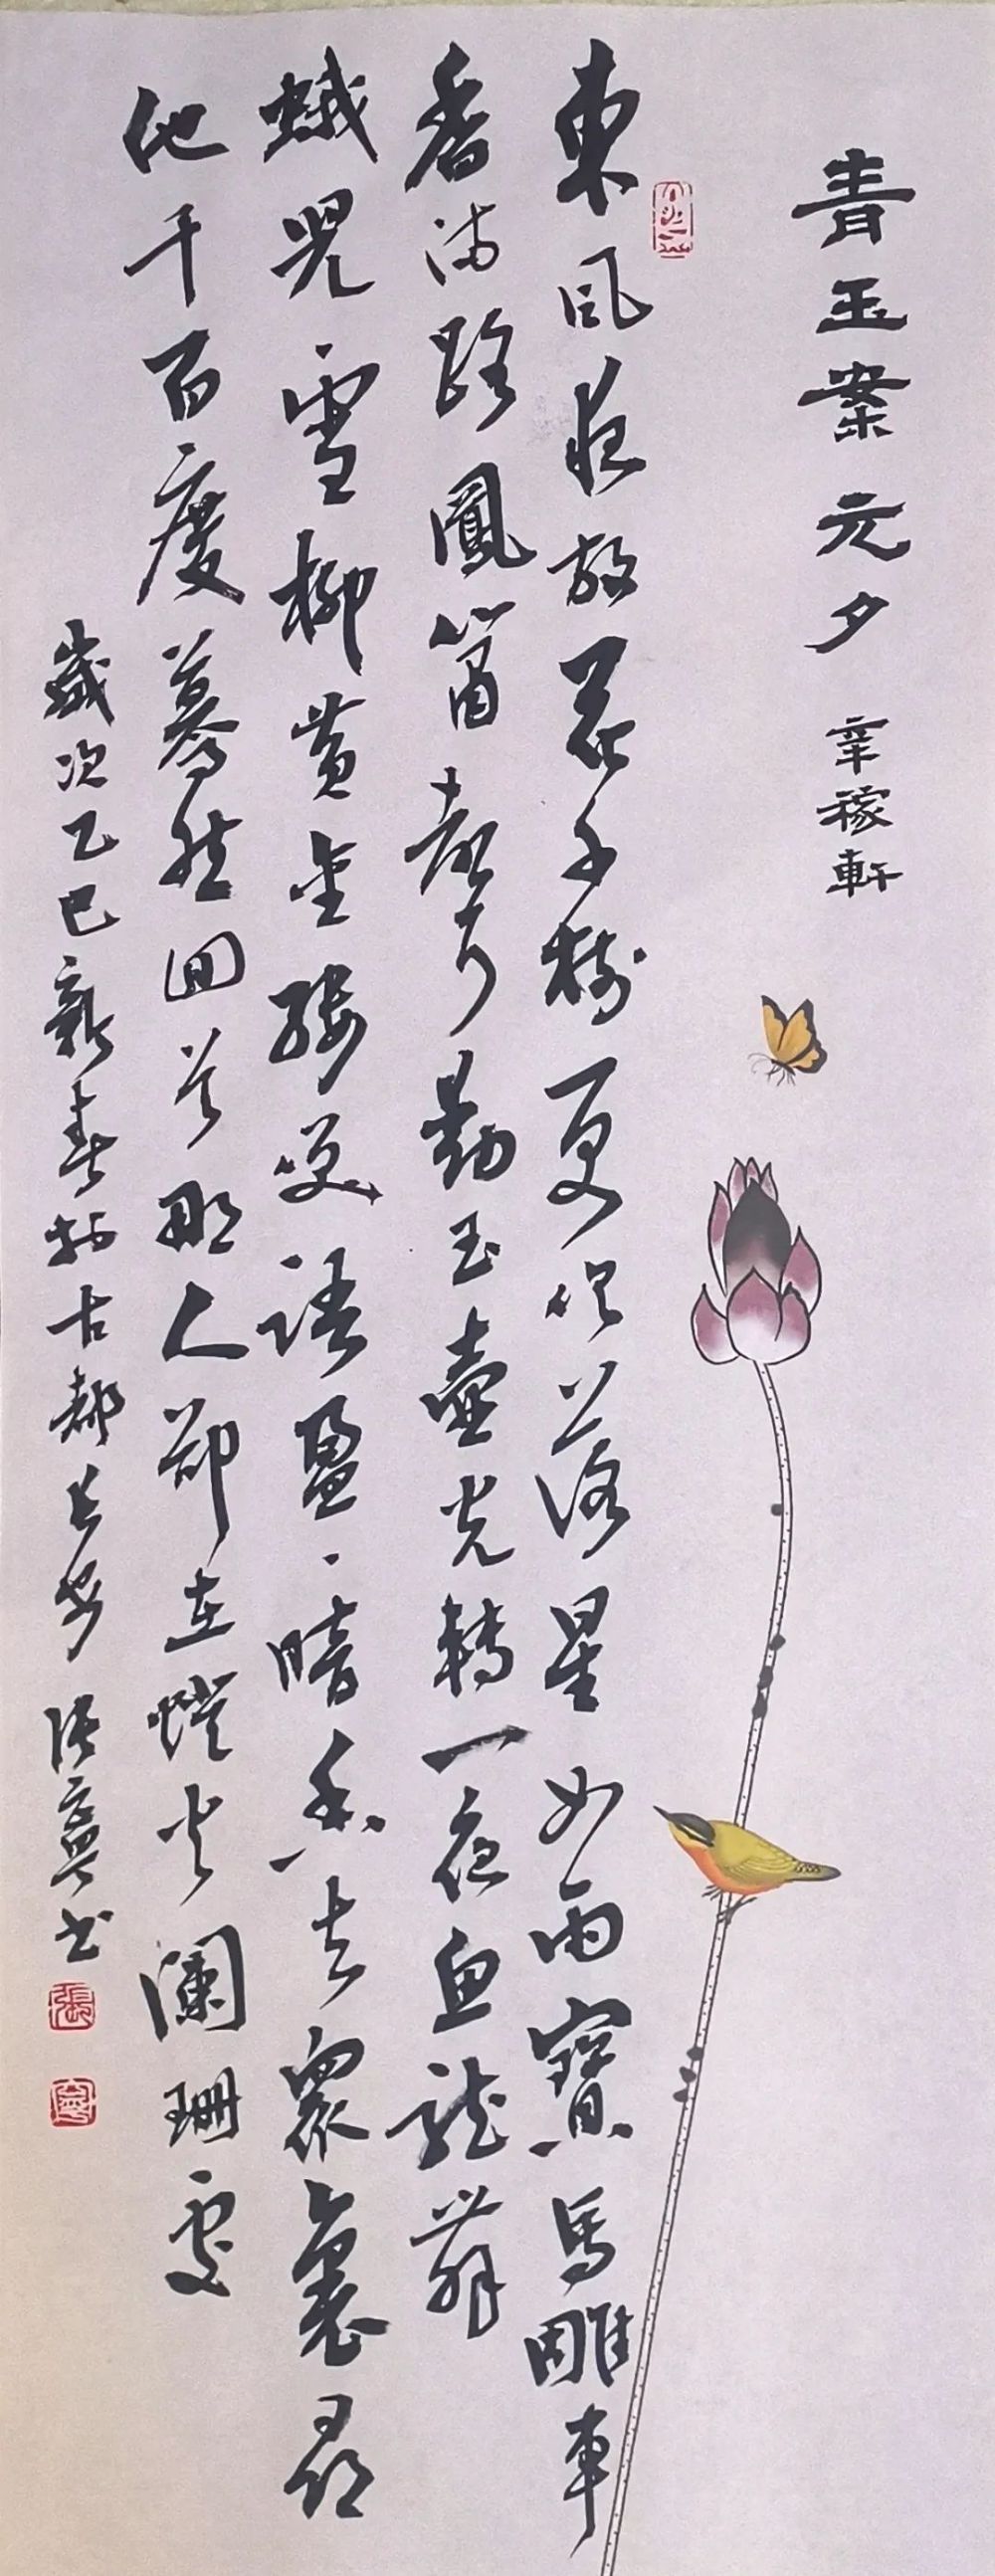 青玉案 元夕 辛稼軒
東風夜放花千樹更吹落星如雨寶馬雕車
香滿路鳳簫聲動玉壺光轉一夜魚龍舞
蛾兒雪柳黃金縷笑語盈盈暗香去衆裏尋
他千百度驀然回首那人卻在燈火闌珊處
歲次乙巳新春於古都長安 張寧書
張
寧